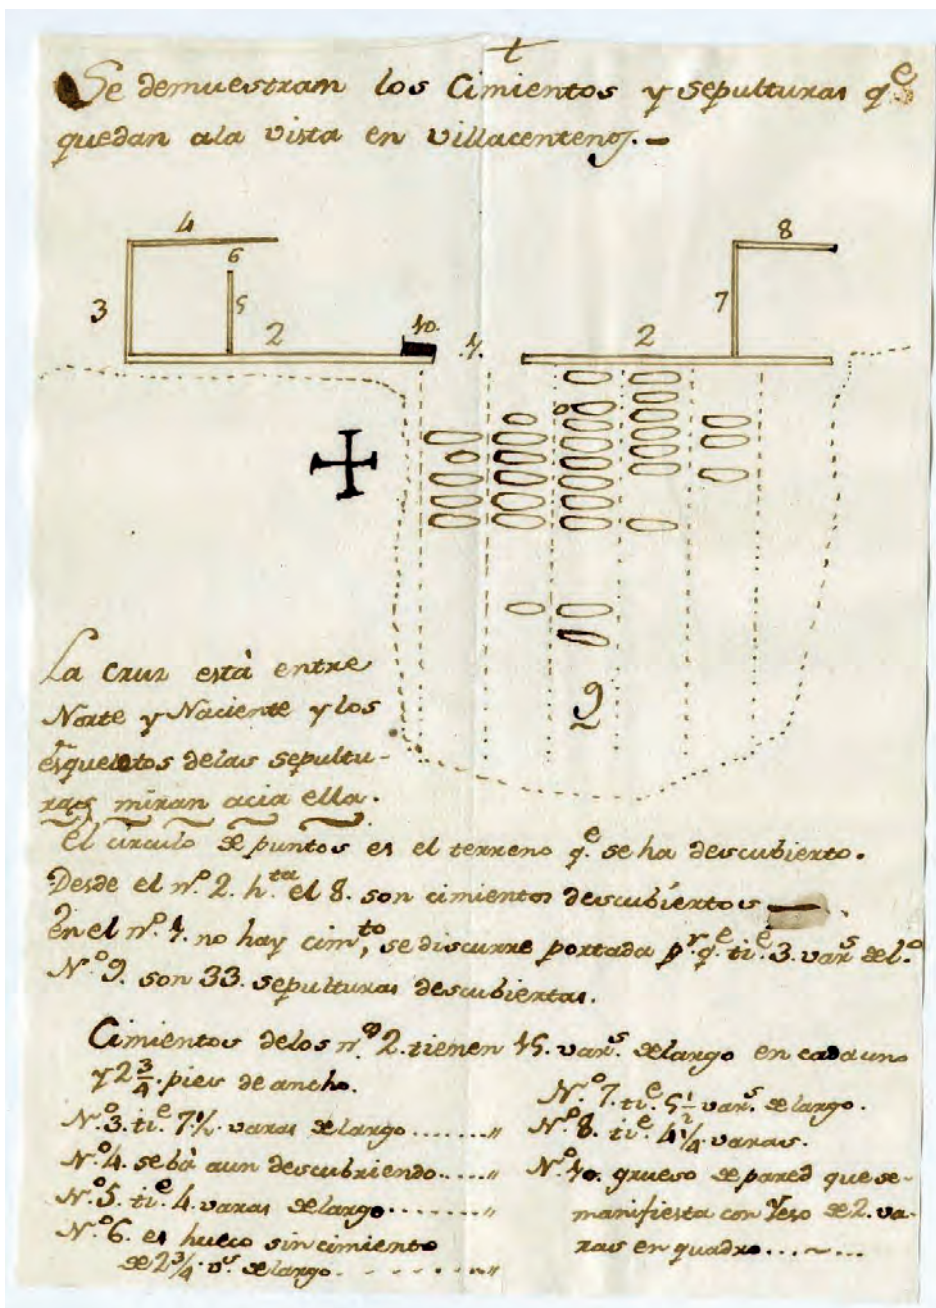 Se demuestram los Cimientos y sepulturas q.e
quedan ala vista en villacentenos.
4
8
6
3
5
7
2
10.
.1.
2
9
La cruz está entre
Norte y Naciente y los
esqueletos delas sepultu-
ras miran acia ella.
El circulo de puntos es el terreno q.e se ha descubierto.
Desde el n.o 2. h.ta el 8. son cimientos descubiertos
En el n.o 1. no hay cim.to, se discurre portada p.r q.e ti.e 3. var.s de l.o
N.o 9. son 33. sepulturas descubiertas.
Cimientos delos n.o 2. tienen 15. var.s de largo en cada uno
y 2 3/4 pies de ancho.
N.o 3. ti.e 7 1/2. varas de largo ......."
N.o 4. se bá aun descubriendo....."
N.o 5. ti.e 4. varas de largo........"
N.o 6. es hueco sin cimiento
de 2 3/4. v.s de largo. - - - - ..."
N.o 7. ti.e 5 1/2 var.s de largo.
N.o 8. ti.e 4 1/4. varas.
N.o 10. grueso de pared que se
manifiesta con Yeso de 2. va-
ras en quadro....~...